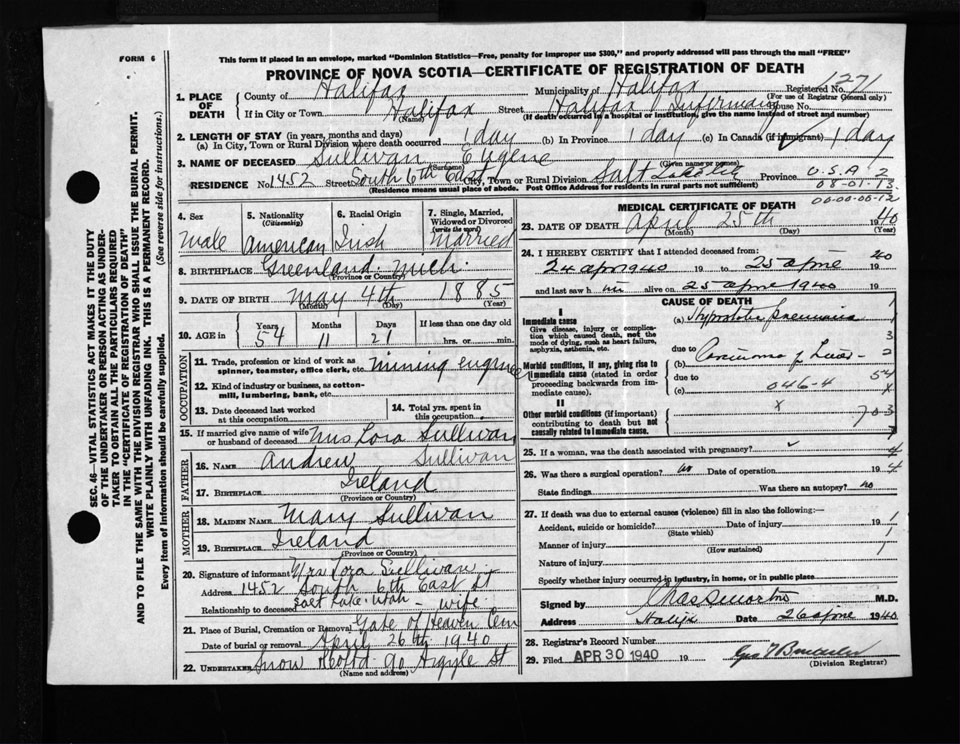 FORM 6
This form if placed in an envelope, marked "Dominion Statistics—Free, penalty for improper use $300," and properly addressed will pass through the mail "FREE"
PROVINCE OF NOVA SCOTIA—CERTIFICATE OF REGISTRATION OF DEATH
1271
1. PLACE OF DEATH
County of Halifax Municipality of Halifax Registered No.
(For use of Registrar General only)
If in City or Town Halifax Street Halifax Infirmary House No.
(Name) (If death occurred in a hospital or institution, give the name instead of street and number)
2. LENGTH OF STAY (in years, months and days)
(a) In City, Town or Rural Division where death occurred 1 day (b) In Province 1 day (c) In Canada (if immigrant) 1 day
3. NAME OF DECEASED Sullivan Eugene
(Surname) (Given name or names)
RESIDENCE No. 1452 Street South 6th East City, Town or Rural Division Salt Lake City Province U.S.A 2
(Residence means usual place of abode. Post Office Address for residents in rural parts not sufficient)
08-01-13
00-00-00-12
4. Sex
male
5. Nationality
(Citizenship)
American
6. Racial Origin
Irish
7. Single, Married, Widowed or Divorced
(write the word)
Married
8. BIRTHPLACE Greenland Mich.
(Province or Country)
9. DATE OF BIRTH May 4th 1885
(Month) (Day) (Year)
10. AGE in
Years Months Days If less than one day old
54 11 21 hrs. or min.
OCCUPATION
11. Trade, profession or kind of work as spinner, teamster, office clerk, etc. mining engineer
12. Kind of industry or business, as cotton-mill, lumbering, bank, etc.
13. Date deceased last worked at this occupation
14. Total yrs. spent in this occupation
15. If married give name of wife or husband of deceased Mrs Lora Sullivan
FATHER
16. NAME Andrew Sullivan
17. BIRTHPLACE Ireland
(Province or Country)
MOTHER
18. MAIDEN NAME Mary Sullivan
19. BIRTHPLACE Ireland
(Province or Country)
20. Signature of informant Mrs Lora Sullivan
Address 1452 South 6th East St
Salt Lake Utah
Relationship to deceased wife
21. Place of Burial, Cremation or Removal Gate of Heaven Cem
Date of burial or removal April 26th 1940
22. UNDERTAKER Snow & Co Ltd 90 Argyle St
(Name and address)
MEDICAL CERTIFICATE OF DEATH
23. DATE OF DEATH April 25th 1940
(Month) (Day) (Year)
24. I HEREBY CERTIFY that I attended deceased from:
24 apr 1940 19 to 25 apr 40
and last saw h im alive on 25 apr 1940 19
CAUSE OF DEATH
I
Immediate cause
Give disease, injury or complication which caused death, not the mode of dying, such as heart failure, asphyxia, asthenia, etc.
(a) Hypostatic pneumonia
due to
Morbid conditions, if any, giving rise to immediate cause (stated in order proceeding backwards from immediate cause).
(b) Carcinoma of
due to
(c) 046-4
II
Other morbid conditions (if important) contributing to death but not causally related to immediate cause.
1
3
2
54
x
x
703
25. If a woman, was the death associated with pregnancy?
26. Was there a surgical operation? no Date of operation 19
State findings Was there an autopsy? no
4
4
27. If death was due to external causes (violence) fill in also the following:—
Accident, suicide or homicide? Date of injury 19
(State which)
Manner of injury
(How sustained)
Nature of injury
Specify whether injury occurred in industry, in home, or in public place
Signed by M.D.
Address Halifx Date 26 apr 1940
28. Registrar's Record Number
29. Filed APR 30 1940 19
(Division Registrar)
SEC. 46—VITAL STATISTICS ACT MAKES IT THE DUTY OF THE UNDERTAKER OR PERSON ACTING AS UNDERTAKER TO OBTAIN ALL THE PARTICULARS REQUIRED IN THE "CERTIFICATE OF REGISTRATION OF DEATH" AND TO FILE THE SAME WITH THE DIVISION REGISTRAR WHO SHALL ISSUE THE BURIAL PERMIT.
WRITE PLAINLY WITH UNFADING INK. THIS IS A PERMANENT RECORD.
Every item of information should be carefully supplied. (See reverse side for instructions.)